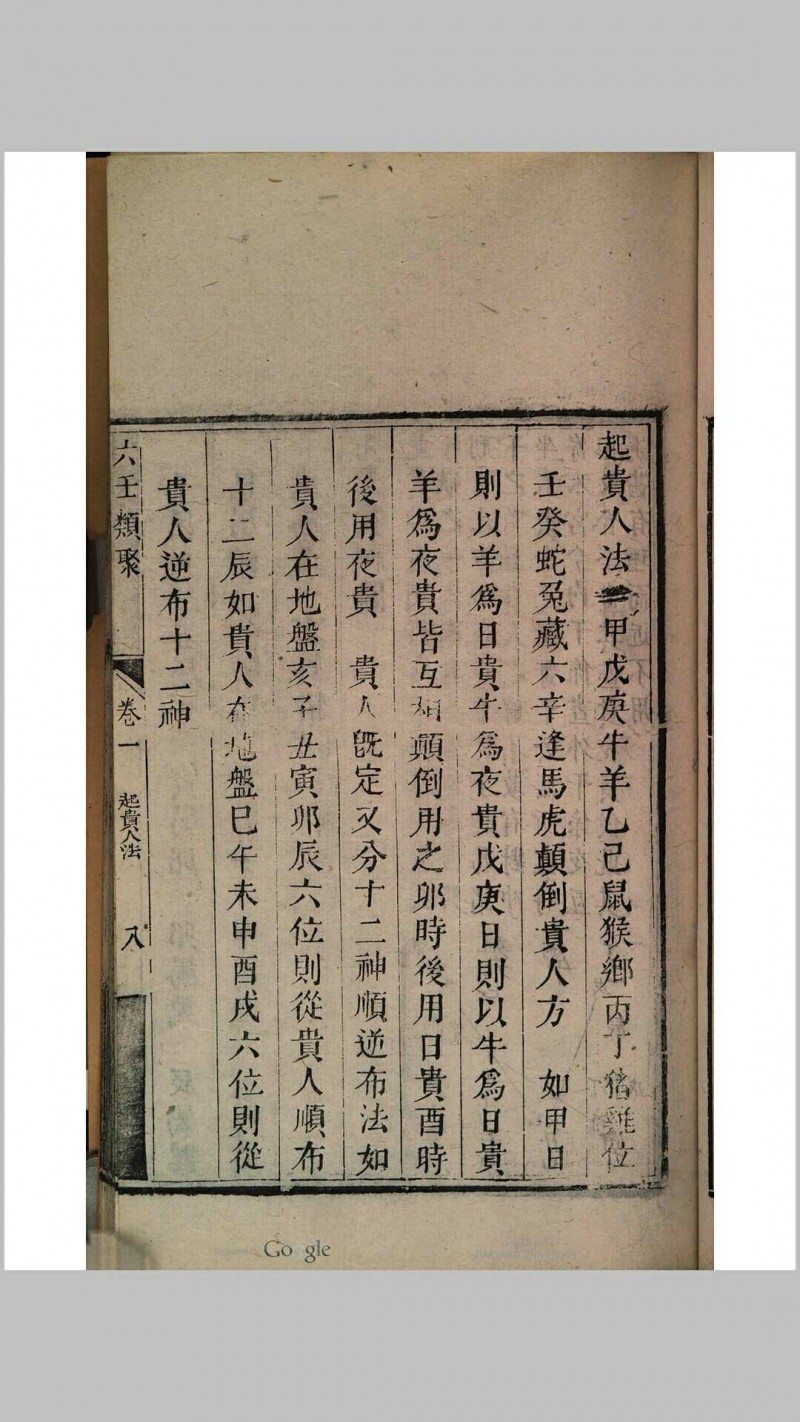 起貴人法 甲戊庚牛羊乙己鼠猴鄉丙丁猪雞位
壬癸蛇兔藏六辛逢馬虎顛倒貴人方 如甲日
則以羊爲日貴牛爲夜貴戊庚日則以牛爲日貴
羊爲夜貴皆互相顛倒用之卯時後用日貴酉時
後用夜貴 貴人旣定又分十二神順逆布法如
貴人在地盤亥子丑寅卯辰六位則從貴人順布
十二辰如貴人在地盤巳午未申酉戌六位則從
貴人逆布十二神
六壬類聚 卷一 起貴人法 八
Go gle